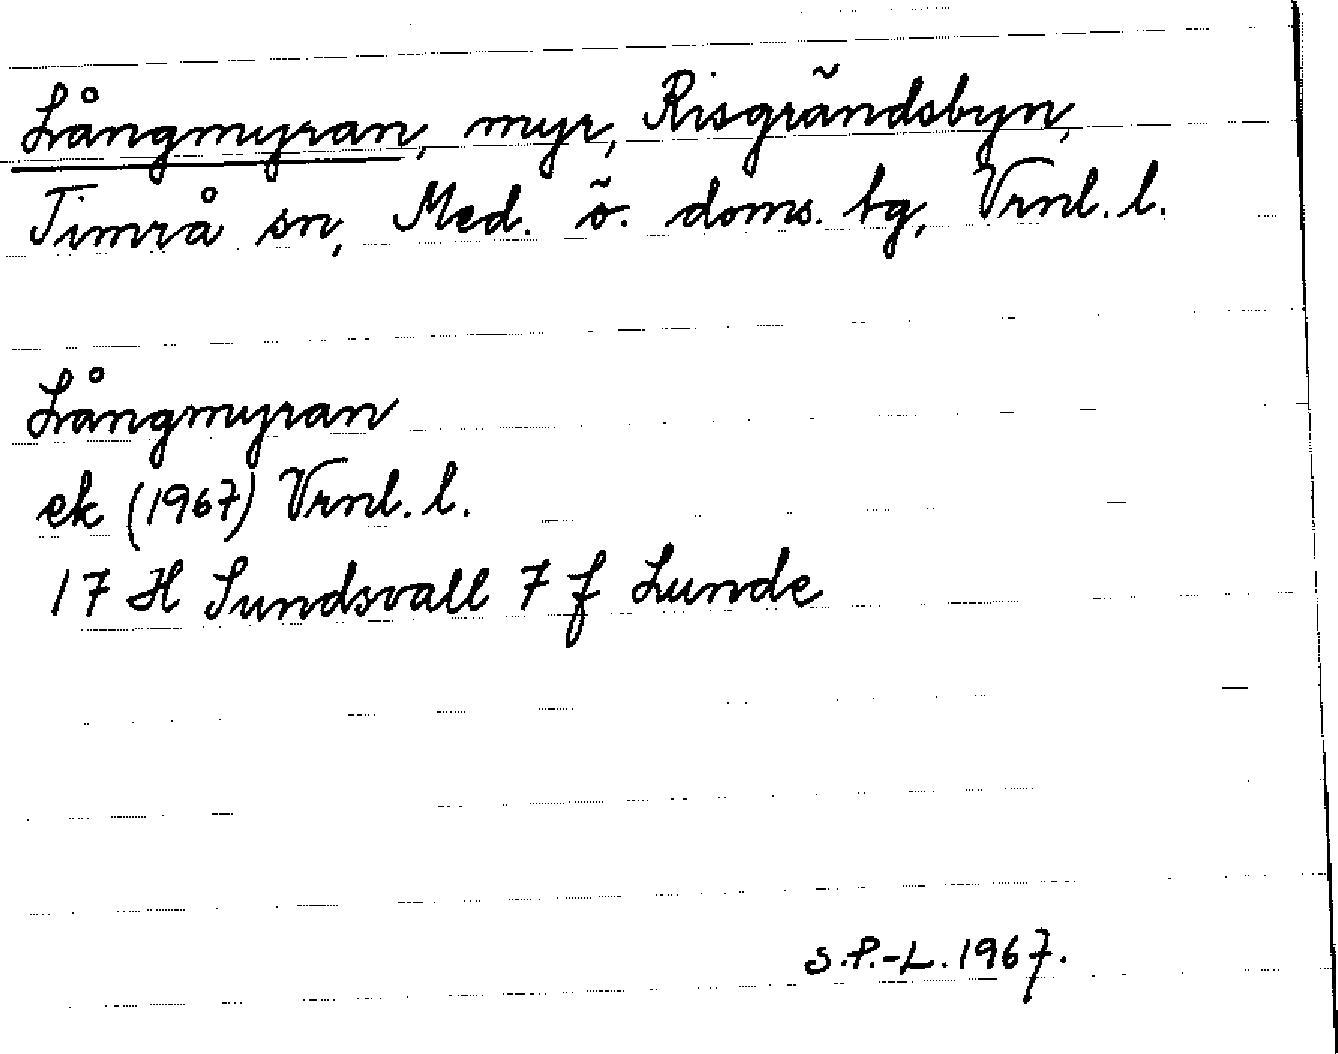 Långmyran, myr, Risgrändsbyn,
Timrå sn, Med. ö. doms. tg, Vrnl. l.
Långmyran
ek (1967) Vrnl. l.
17 H Sundsvall 7 f Lunde
S.P.-L. 1967.